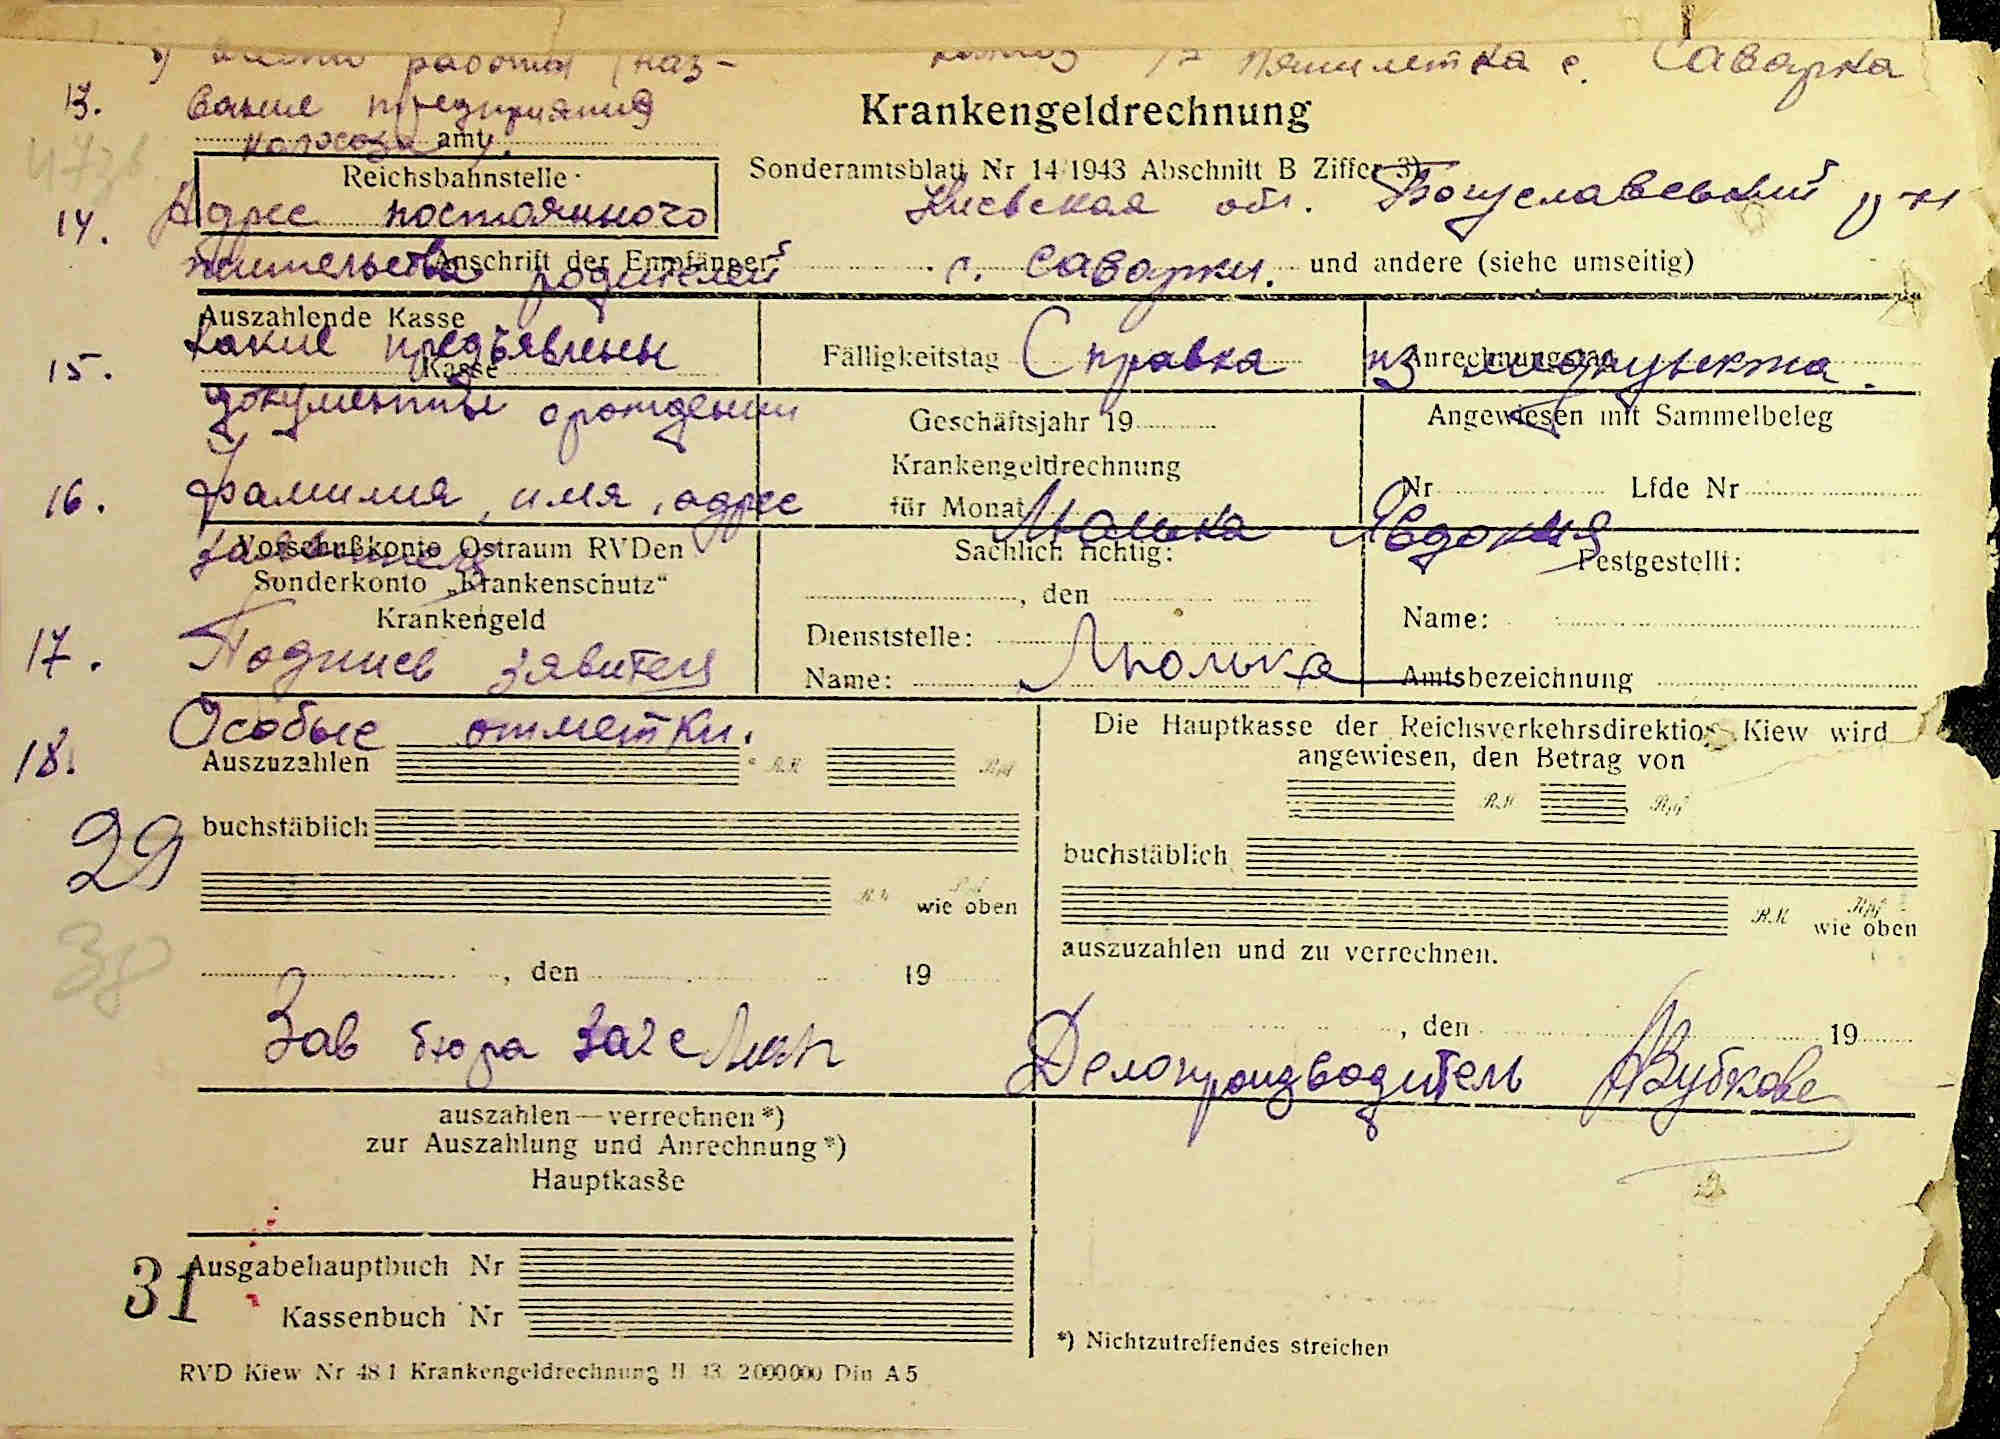 место работы (наз- колхоз 17 пятилетка с. Саварка
13. вание предприятия
Krankengeldrechnung
колхоза amt
Reichsbahnstelle
Sonderamtsblatt Nr 14/1943 Abschnitt B Ziffer 3)
14. Адрес постоянного Киевская обл. Богуславевский р-н
жительства родителей с. Саварки.
Anschrift der Empfänger und andere (siehe umseitig)
Auszahlende Kasse
15. какие предъявлены Справка из медпункта.
Kasse Fälligkeitstag Anrechnungstag
документы орождении
Geschäftsjahr 19 Angewiesen mit Sammelbeleg
Krankengeldrechnung
16. Фамилия, имя, адрес
für Monat Nr Lfde Nr
Люлька Явдокия
заявителя
Vorschußkonto Ostraum RVDen Sachlich richtig: Festgestellt:
Sonderkonto „Krankenschutz“ , den
Krankengeld Name:
Dienststelle:
17. Подпись заявителя Люлька
Name: Amtsbezeichnung
18. Особые отметки.
Die Hauptkasse der Reichsverkehrsdirektion Kiew wird
Auszuzahlen RM Rpf angewiesen, den Betrag von
RM Rpf
29
buchstäblich buchstäblich
RM Rpf wie oben RM Rpf wie oben
38
auszuzahlen und zu verrechnen.
, den 19
, den 19
Зав бюра загс Делопроизводитель Зубкова
auszahlen—verrechnen*)
zur Auszahlung und Anrechnung*)
Hauptkasse
31
Ausgabehauptbuch Nr
Kassenbuch Nr
*) Nichtzutreffendes streichen
RVD Kiew Nr 48 1 Krankengeldrechnung II 43 2000000 Din A5